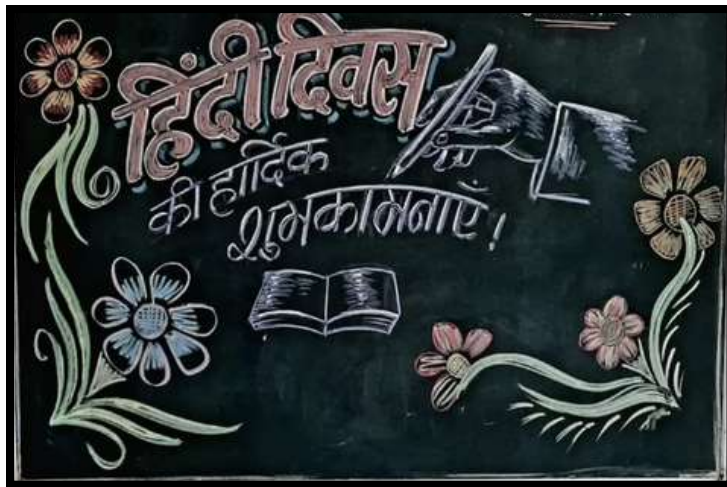 हिंदी दिवस
की हार्दिक
शुभकामनाएँ!